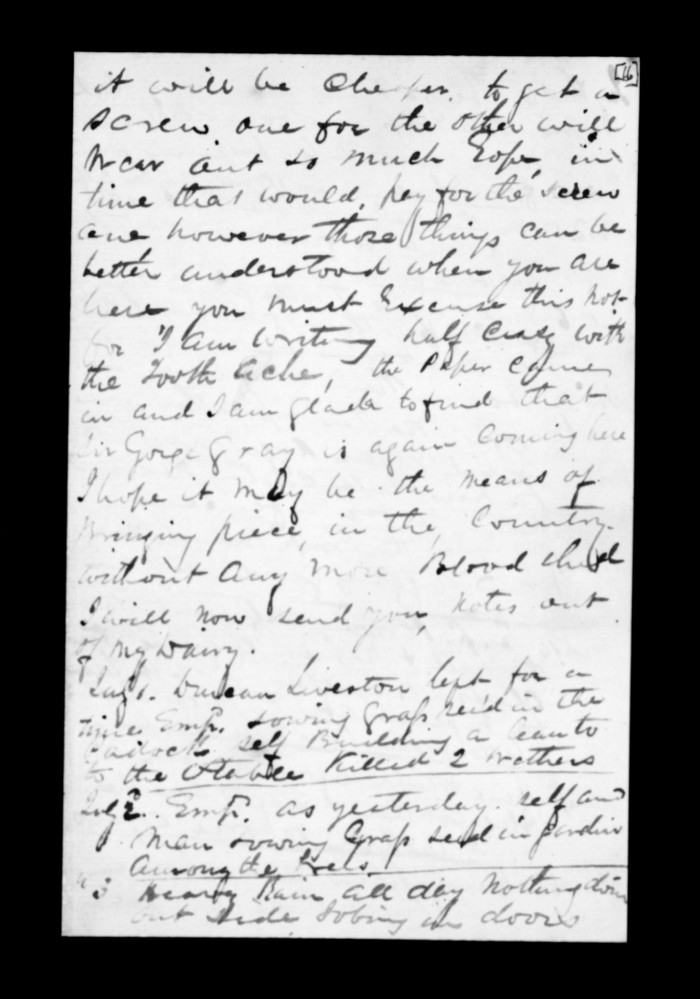 [16]
it will be Cheaper. to get a
screw one for the other will
Wear out so much Rope, in
time that would, pay for the screw
one however those things can be
better understood when you are
here you must Excuse this not
for I am writing half Crasy with
the Tooth Ache, the Paper Comes
in and I am glade to find that
Sir Gorge Gray is again Coming here
I hope it may be the means of
Bringing piece, in the, Country.
without Any More Blood shed
I will now send you, Notes out
of my Dairy.
Augt 1. Duncan Liveston left for a
time Empd. sowing Grass seed in the
Padock. self Building a lean to
to the Stable Killed 2 Wethers
2. Empd. as yesterday. self and
man sowing Grass seed in gardin
Among the trees.
" 3 Heavy Rain all day Nothing doin
out side Jobing in doors